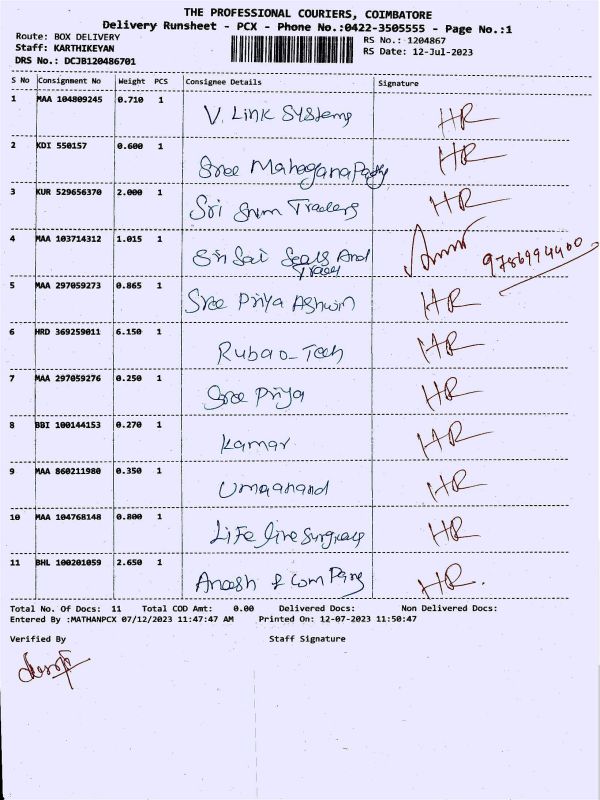 THE PROFESSIONAL COURIERS, COIMBATORE
Delivery Runsheet - PCX - Phone No.:0422-3505555 - Page No.:1
Route: BOX DELIVERY RS No.: 1204867
Staff: KARTHIKEYAN RS Date: 12-Jul-2023
DRS No.: DCJB120486701
S No Consignment No Weight PCS Consignee Details Signature
1 MAA 104809245 0.710 1 V. Link Systems HR
2 KDI 550157 0.600 1 Sree Mahaganapathy HR
3 KUR 529656370 2.000 1 Sri Traders HR
4 MAA 103714312 1.015 1 Sri Sai Seals And 9786994400
5 MAA 297059273 0.865 1 Sree Priya Ashwin HR
6 HRD 369259011 6.150 1 Rubao-Tech HR
7 MAA 297059276 0.250 1 Sree Priya HR
8 BBI 100144153 0.270 1 Kamar HR
9 MAA 860211980 0.350 1 Umaanand HR
10 MAA 104768148 0.800 1 Life line HR
11 BHL 100201059 2.650 1 & Company HR.
Total No. Of Docs: 11 Total COD Amt: 0.00 Delivered Docs: Non Delivered Docs:
Entered By :MATHANPCX 07/12/2023 11:47:47 AM Printed On: 12-07-2023 11:50:47
Verified By Staff Signature